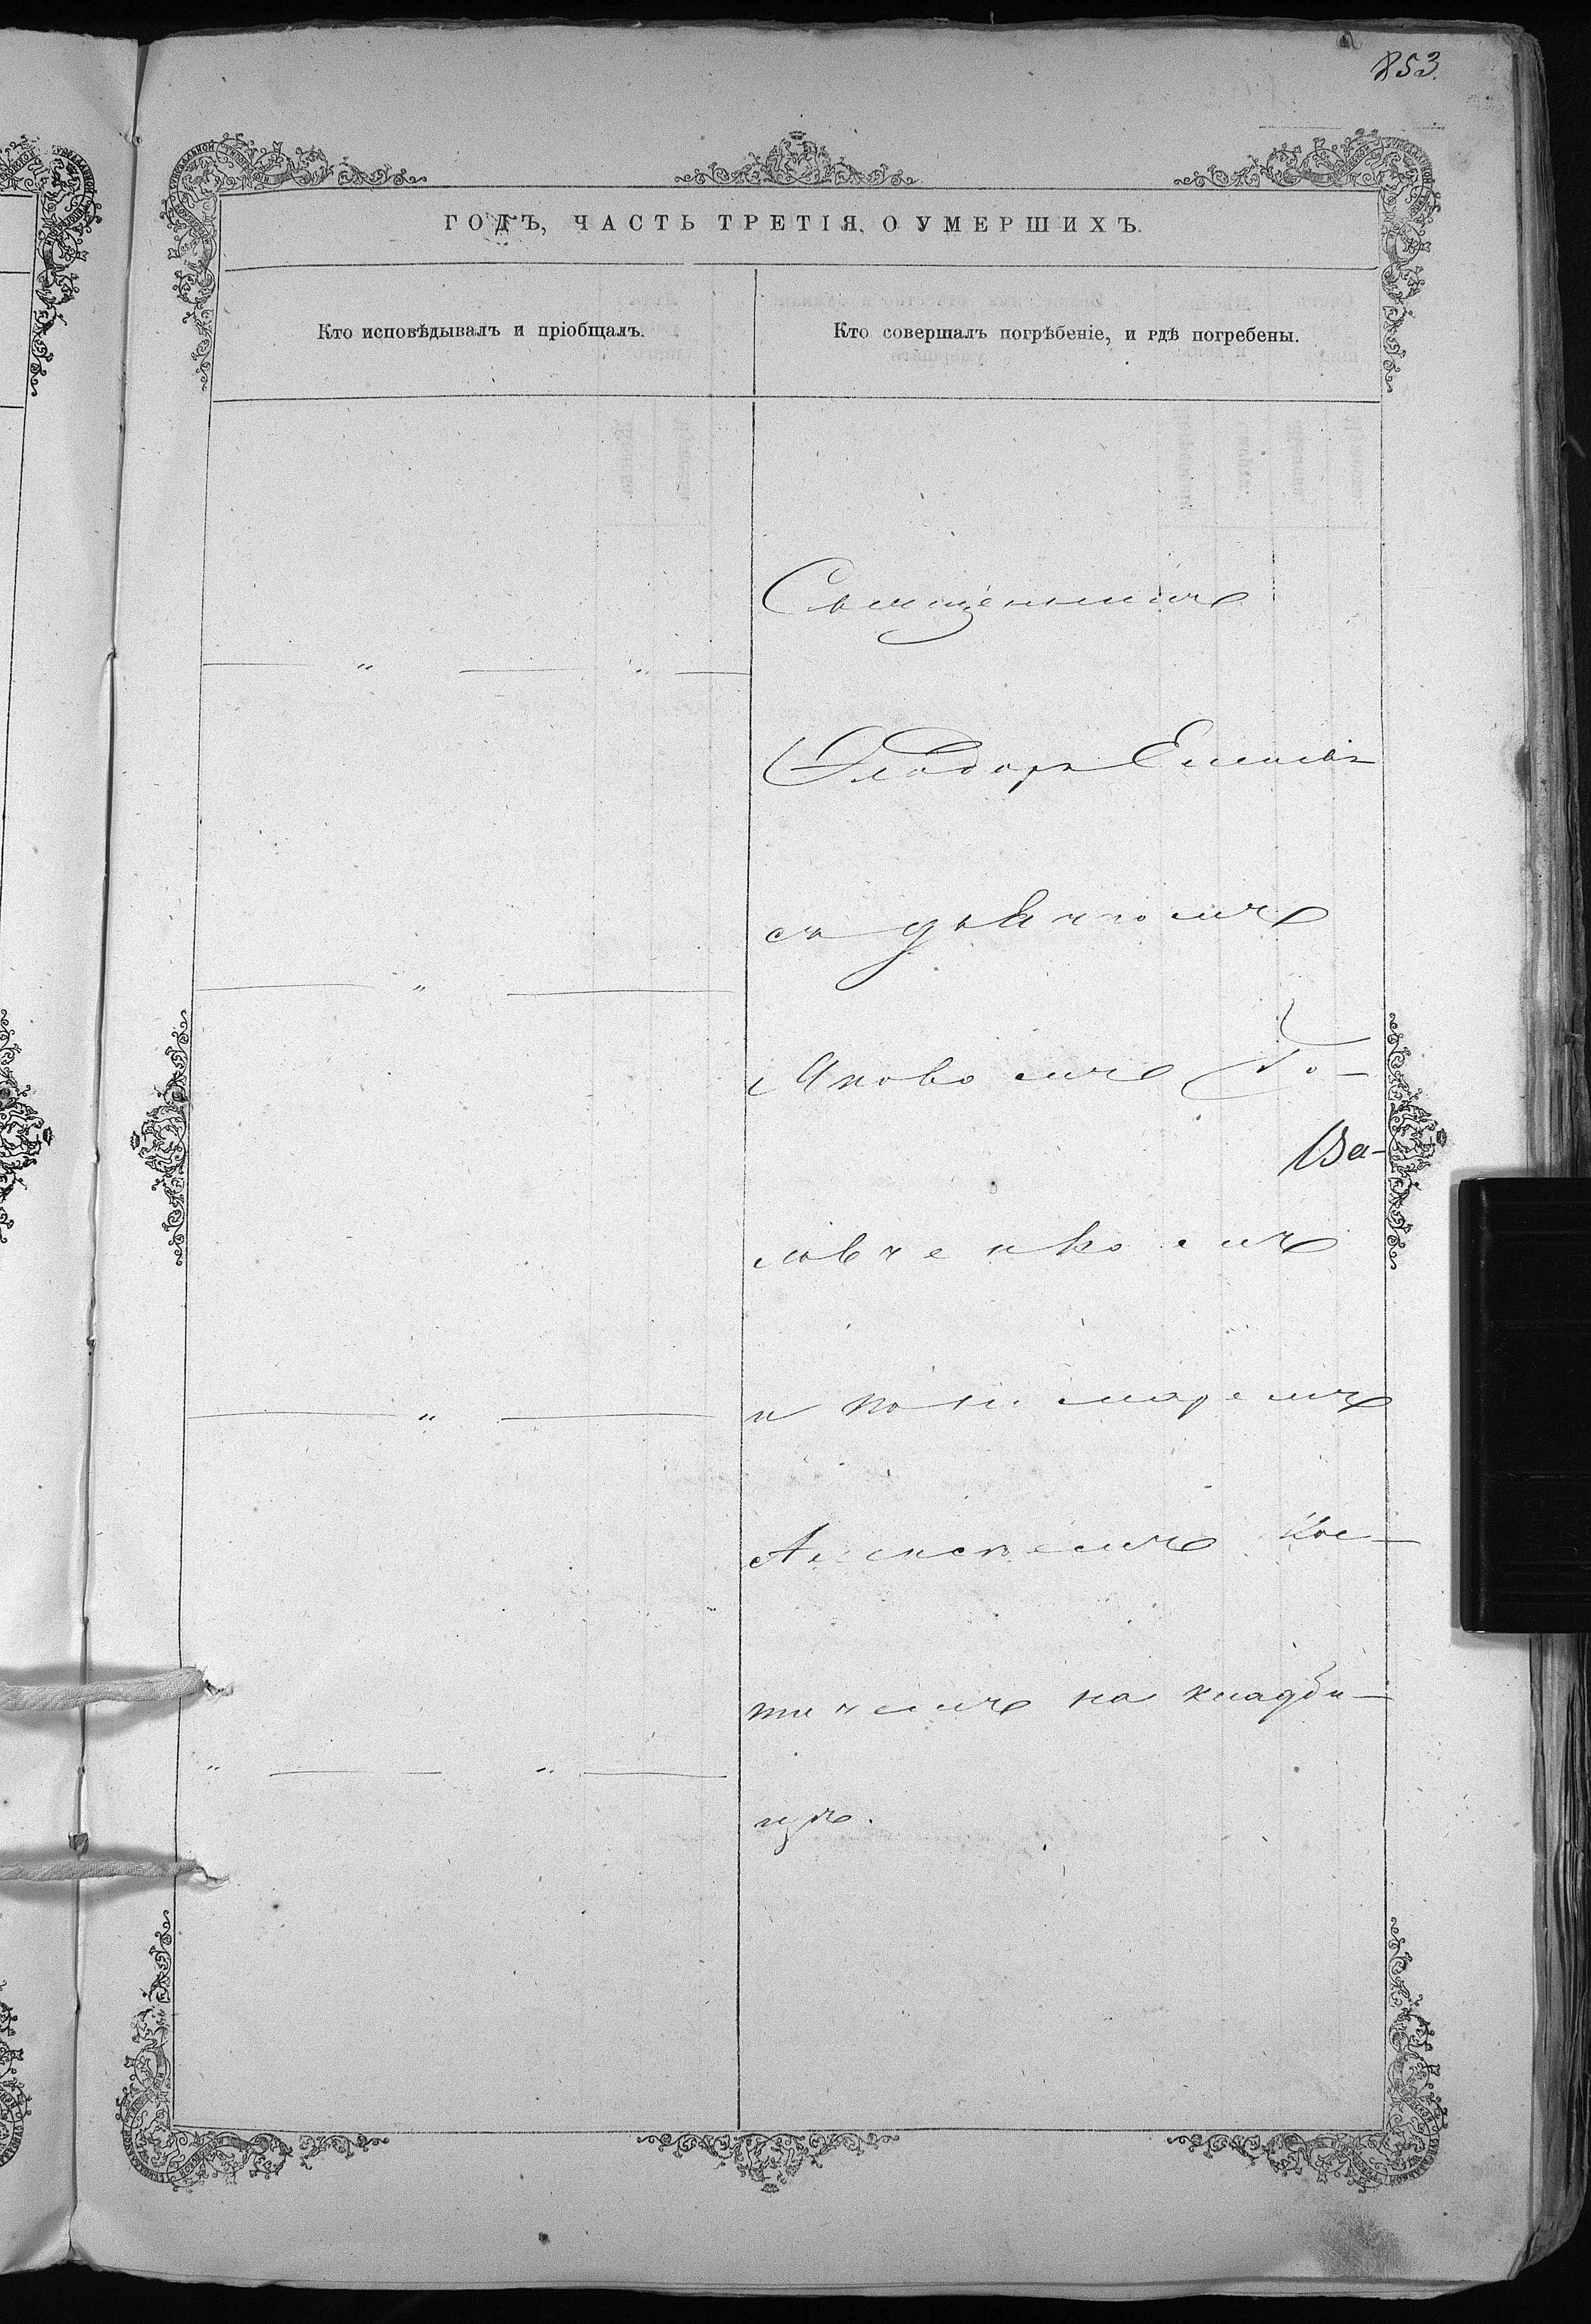 853.
ГОДЪ, ЧАСТЬ ТРЕТІЯ, О УМЕРШИХЪ.
Кто исповѣдывалъ и пріобщалъ.
Кто совершалъ погрѣбеніе, и гдѣ погребены.
Священникъ
Ѳеодоръ
съ дьячкомъ
Яковомъ Го-
Ва-
ловченкомъ
и пономаремъ
Кос-
тичемъ на кладби-
щѣ.